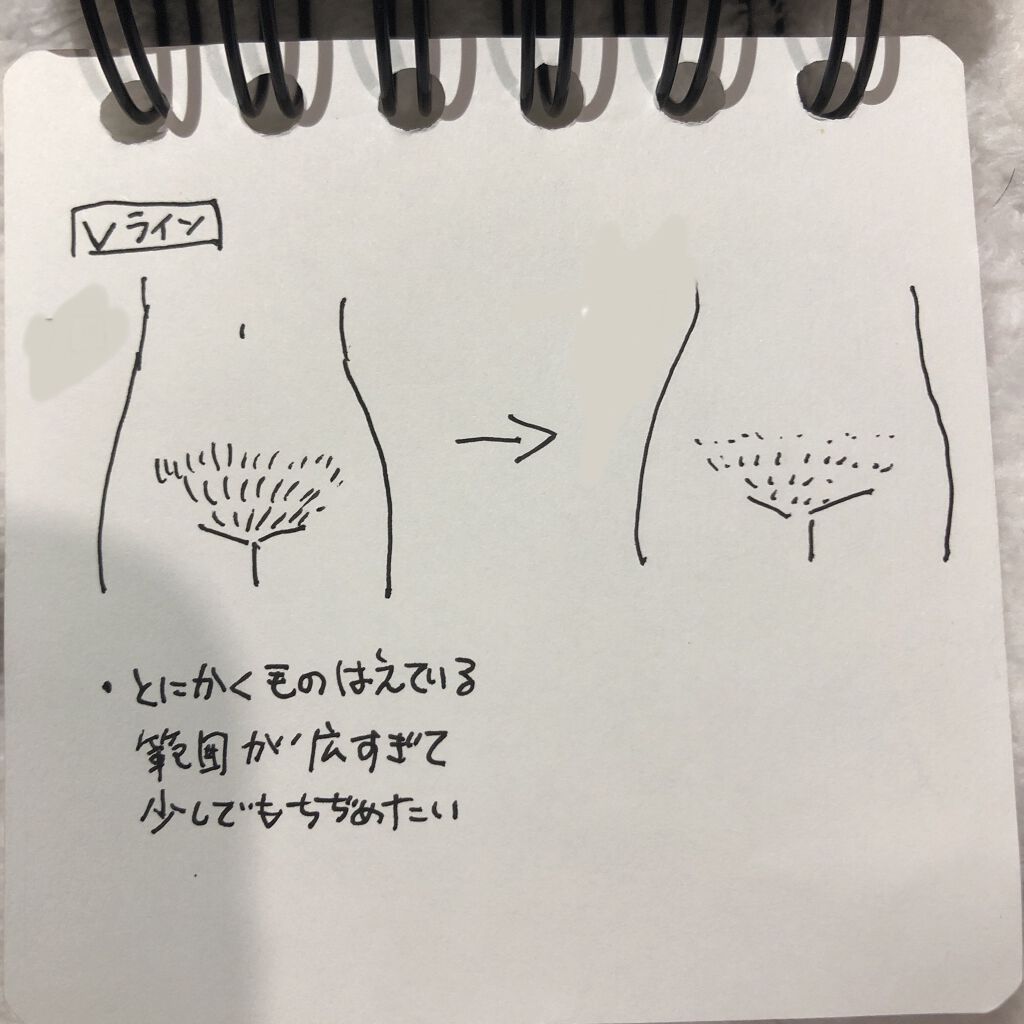 Vライン
・とにかく毛のはえている
範囲が広すぎて
少しでもちぢめたい